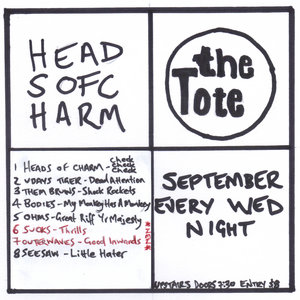 HEAD
SOFC
HARM
the
Tote
1 HEADS OF CHARM - Check Check Check
2 UDAYS TIGER - Dead Attention
3 THEM BRUINS - Shock Rockets
4 BODIES - My Monkey Has A Monkey
5 OHMS - Great Riff Yr Majesty
6 SUCKS - Thrills
7 OUTERWAVES - Good Inwards
8 SEESAW - Little Hater
SEPTEMBER
EVERY WED
NIGHT
UPSTAIRS DOORS 7:30 ENTRY $8